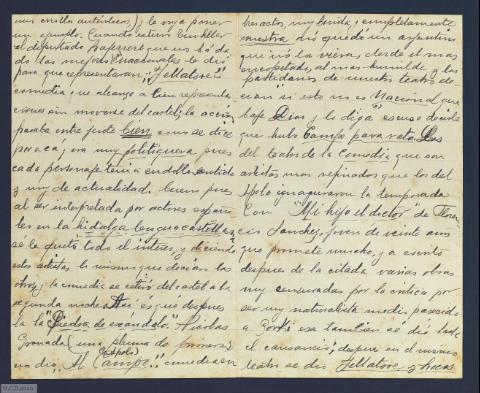 un criollo auténticos); le voy á poner
un ejemplo. Cuando estuvo
el diputado Laferrere que es
de las mejores le dió
para que representaran "Jettatore"
comedia que alcanzo á cien representa
ciones sin moverse del cartel; la accion
pasaba entre gente bien como se dice
por acá; era muy politiquera pues
cada personaje tenia su doble sentido
y muy de actualidad, bueno pues
al ser interpretada por actores españo
les en la hidalga lengua castellana
se le quito todo el interes, y diciendo
estos artistas lo mismo que decian los
otros, la comedia se retiró del cartel a la
segunda noche. Asi es que despues
la "Piedra de escándalo" Nicolas
Granada (una pluma de primera)
un dia, Al Campo", comedia en
actos, muy bonita, y completamente
nuestra no quedó un argentino
que no la viera, desde el mas
encopetado, al mas humilde, y los
partidarios de nuestro teatro de
cian si esto no es Nacional que
baje Dios y lo diga" escuso decirle
que hubo Campo para rato. Los
del teatro de la Comedia que son
artistas mas refinados que los del
Apolo inauguraron la temporada
con "M'hijo el doctor" de Floren
cio Sanchez, joven de veinte años
que promete mucho, y a escrito
despues de la citada varias obras
muy censuradas por la critica por
ser muy naturalista medio parecido
a Gorki esa tambien se dió hasta
el cansancio; despues en el mismo
teatro se dió Jettatore y Locos